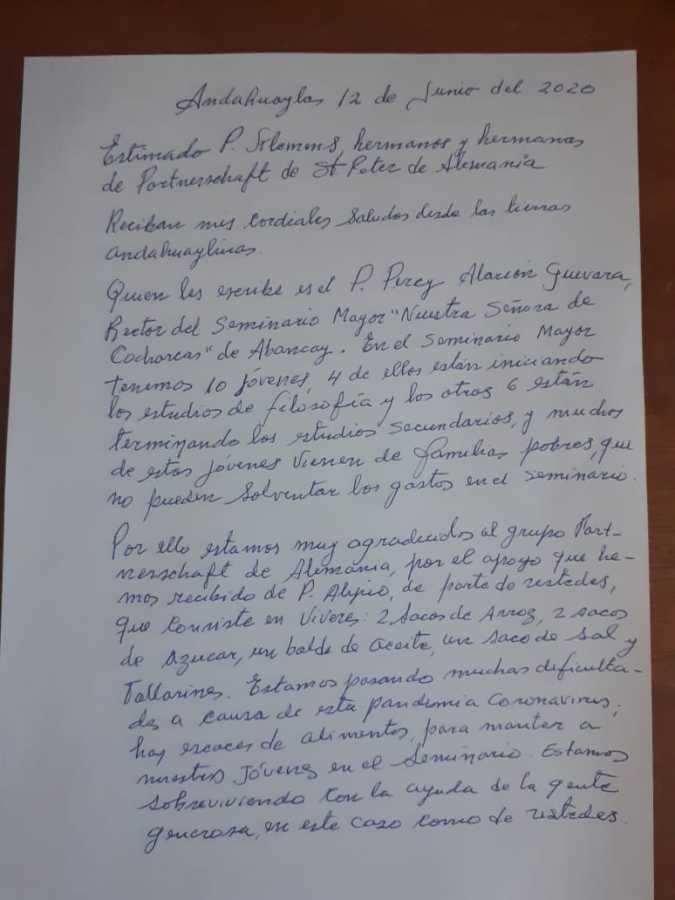 Andahuaylas 12 de Junio del 2020
Estimado P. Slemens, hermanos y hermanas
de Partnerschaft de St Peter de Alemania
Reciban mis cordiales saludos desde las tierras
andahuaylinas.
Quien les escribe es el P. Percy Alarcón Guevara,
Rector del Seminario Mayor "Nuestra Señora de
Cocharcas" de Abancay. En el Seminario Mayor
tenemos 10 jóvenes, 4 de ellos están iniciando
los estudios de filosofía y los otros 6 están
terminando los estudios secundarios, y muchos
de estos jóvenes vienen de familias pobres, que
no pueden solventar los gastos en el seminario.
Por ello estamos muy agradecidos al grupo Part-
nerschaft de Alemania, por el apoyo que he-
mos recibido de P. Alipio, de parte de ustedes,
que consiste en víveres: 2 sacos de Arroz, 2 sacos
de azucar, un balde de aceite, un saco de sal y
Tallarines. Estamos pasando muchas dificulta-
des a causa de esta pandemia coronavirus;
hay escaces de alimentos, para manter a
nuestros jóvenes en el Seminario. Estamos
sobreviviendo con la ayuda de la gente
generosa, en este caso como de ustedes.